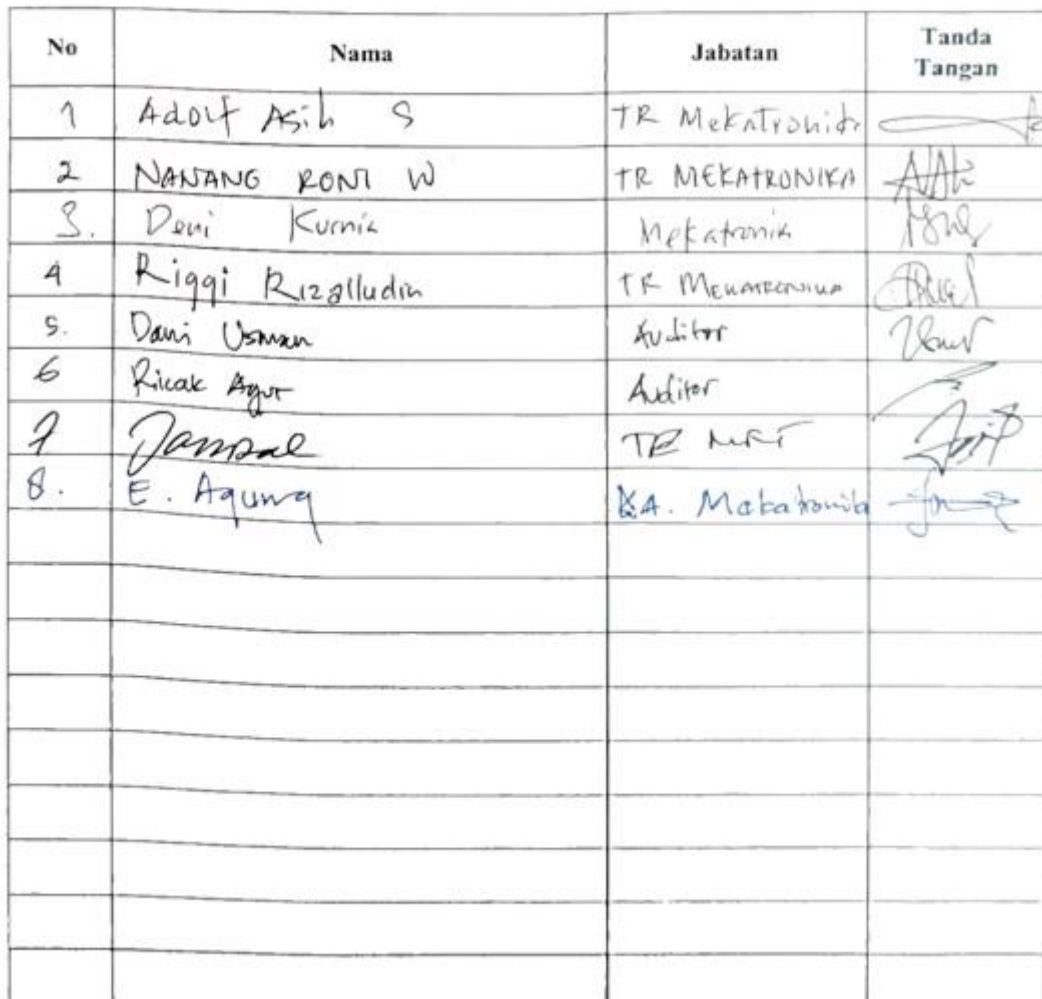 No Nama Jabatan Tanda Tangan
1 Adolf Asih S TR Mekatronika
2 NANANG RONI W TR MEKATRONIKA
3. Deni Kurnia Mekatronik
4 Riqqi Rizalludin TR MEKATRONIKA
5. Dani Usman Auditor
6 Ricak Agus Auditor
7 TR
8. E. Agung KA. Mekatronika